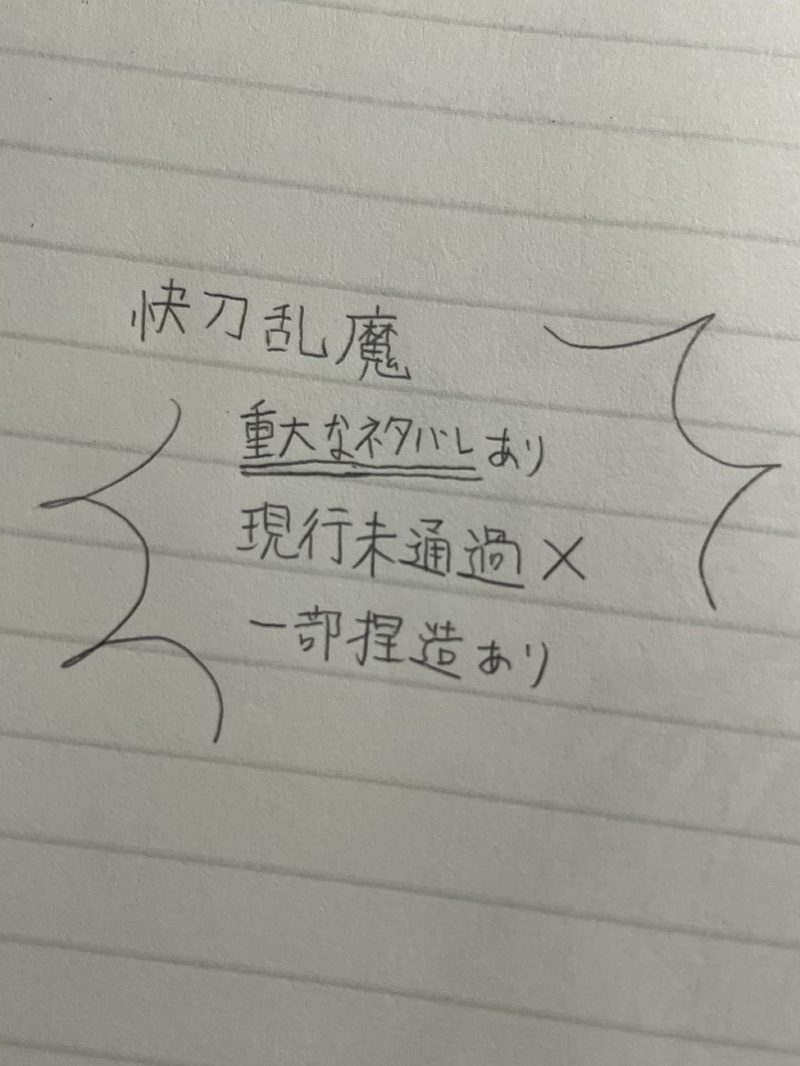 快刀乱魔
重大なネタバレあり
現行未通過×
一部捏造あり